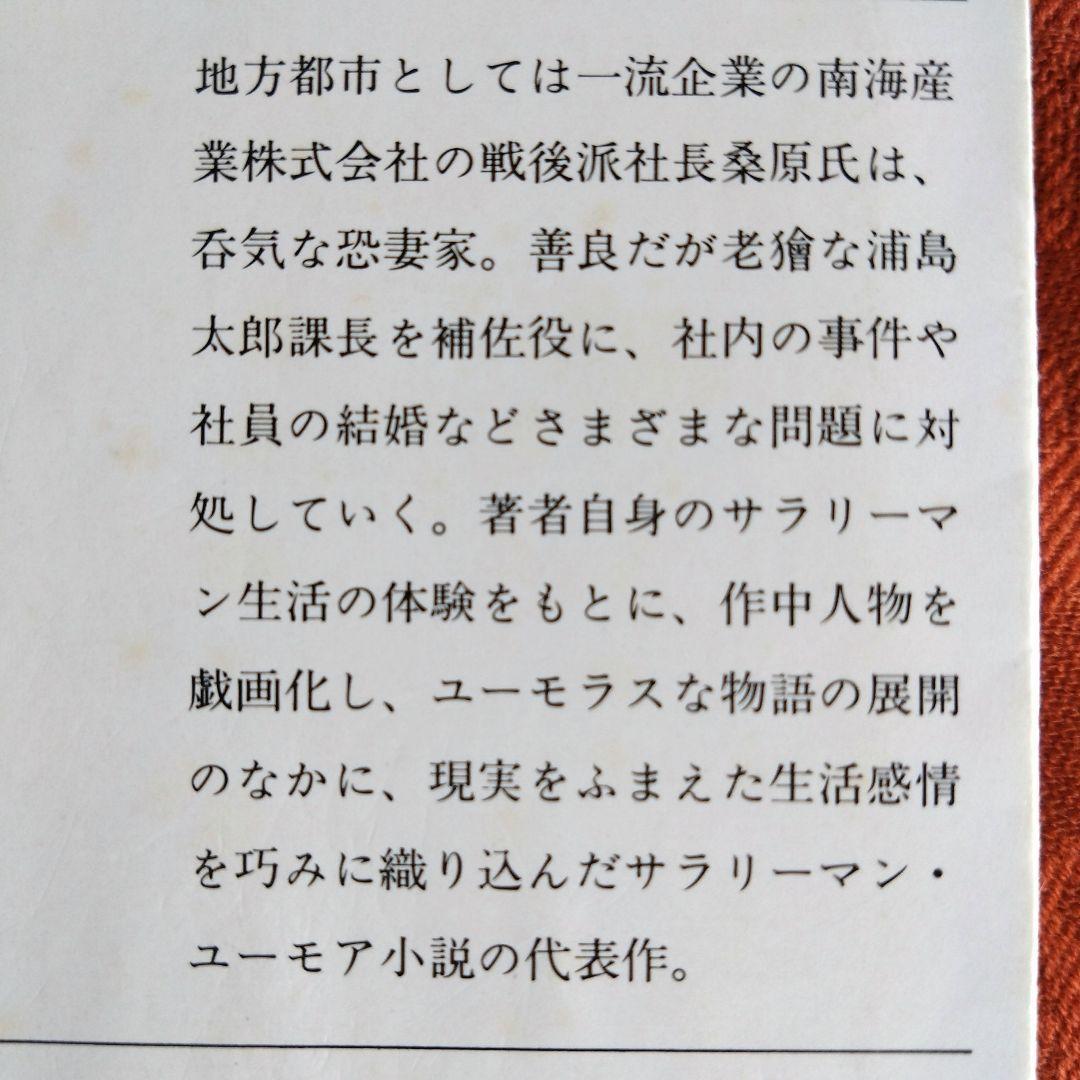 地方都市としては一流企業の南海産
業株式会社の戦後派社長桑原氏は、
呑気な恐妻家。善良だが老獪な浦島
太郎課長を補佐役に、社内の事件や
社員の結婚などさまざまな問題に対
処していく。著者自身のサラリーマ
ン生活の体験をもとに、作中人物を
戯画化し、ユーモラスな物語の展開
のなかに、現実をふまえた生活感情
を巧みに織り込んだサラリーマン・
ユーモア小説の代表作。